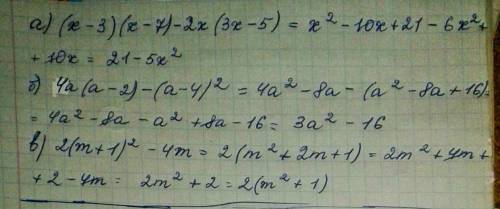 а) (x-3)(x-7)-2x(3x-5) = x²-10x+21-6x²+
+10x = 21-5x²
б) 4a(a-2)-(a-4)² = 4a²-8a-(a²-8a+16)=
=4a²-8a-a²+8a-16= 3a²-16
в) 2(m+1)²-4m = 2(m²+2m+1) = 2m²+4m+
+2-4m = 2m²+2=2(m²+1)